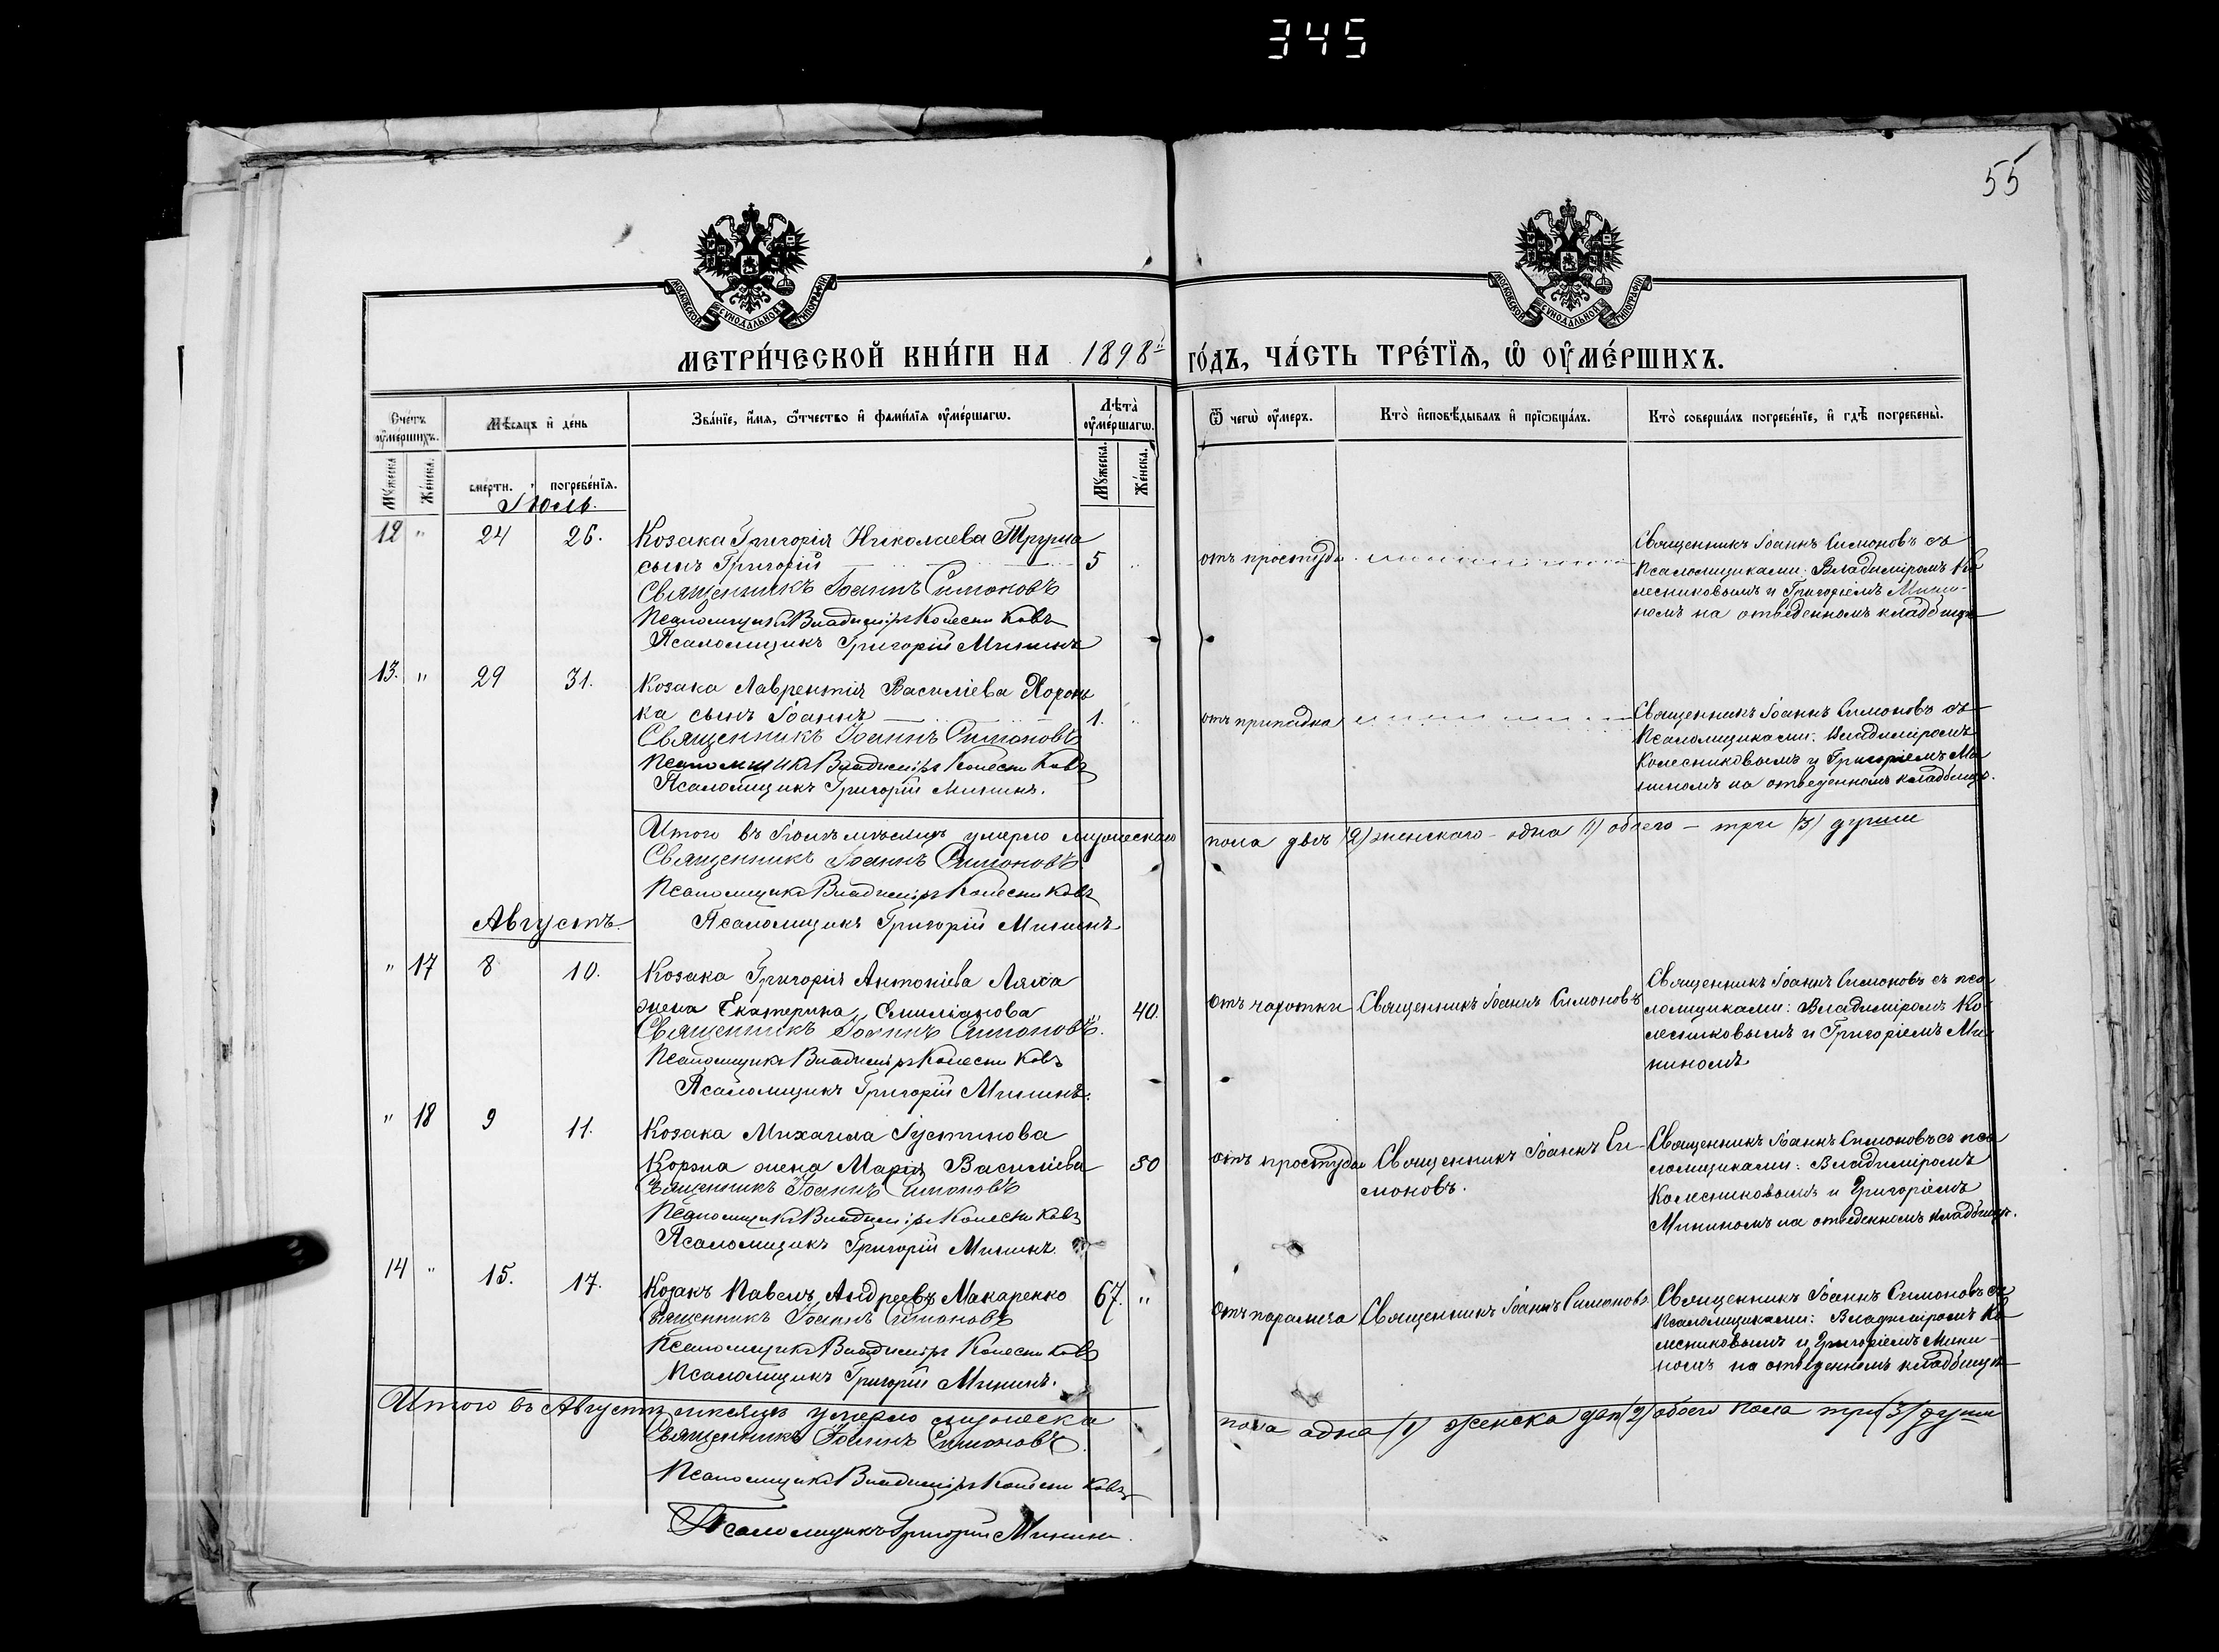 345
55
МОСКОВСКОЙ СУНОДАЛЬНОЙ ТИПОГРАФІИ
МОСКОВСКОЙ СУНОДАЛЬНОЙ ТИПОГРАФІИ
МЕТРИ́ЧЕСКОЙ КНИ́ГИ НА 1898й ГО́ДЪ, ЧА́СТЬ ТРЕ́ТЇѦ, Ѽ ОУ҆МЕ́РШИХЪ.
Счетъ оумершихъ.
Мѣсяцъ и день
Званіе, имя, отчество и фамилія оумершагѡ.
Лѣта оумершагѡ.
Ѿ чегѡ оумеръ.
Кто исповѣдывалъ и пріобщалъ.
Кто совершалъ погребеніе, и гдѣ погребены.
Мужеска
Женска.
смерти.
погребенія.
Мужеска.
Женска.
Іюль.
12 " 24 26. Козака Григорія Николаева
сынъ Григорій 5 отъ простуды
Священникъ Іоаннъ Симоновъ
Псаломщикъ Владиміръ Колесниковъ
Псаломщикъ Григорій Мининъ
Священникъ Іоаннъ Симоновъ съ
псаломщиками: Владиміромъ Ко
лесниковымъ и Григоріемъ Мини-
номъ на отведенномъ кладбищѣ
13. " 29 31. Козака Лаврентія Василіева Хоронь
ка сынъ Іоаннъ 1. отъ припадка
Священникъ Іоаннъ Симоновъ
Псаломщикъ Владиміръ Колесниковъ
Псаломщикъ Григорій Мининъ.
Священникъ Іоаннъ Симоновъ съ
псаломщиками: Владиміромъ
Колесниковымъ и Григоріемъ Ми
нинomъ на отведенномъ кладбищѣ.
Итого въ Іюлѣ мѣсяцѣ умерло мужескаго пола двѣ (2) женскаго – одна (1) обоего – три (3) души
Священникъ Іоаннъ Симоновъ
Псаломщикъ Владиміръ Колесниковъ
Псаломщикъ Григорій Мининъ
Августъ
" 17 8 10. Козака Григорія Антоніева Ляха
жена Екатерина Емиліанова 40. отъ чахотки Священникъ Іоаннъ Симоновъ
Священникъ Іоаннъ Симоновъ.
Псаломщикъ Владиміръ Колесниковъ
Псаломщикъ Григорій Мининъ.
Священникъ Іоаннъ Симоновъ съ пса
ломщиками: Владиміромъ Ко
лесниковымъ и Григоріемъ Ми
ниномъ
" 18 9 11. Козака Михаила Іустинова
Коржа жена Марія Василіева 50 отъ простуды Священникъ Іоаннъ Си-
моновъ.
Священникъ Іоаннъ Симоновъ
Псаломщикъ Владиміръ Колесниковъ
Псаломщикъ Григорій Мининъ.
Священникъ Іоаннъ Симоновъ съ пса
ломщиками: Владиміромъ
Колесниковымъ и Григоріемъ
Мининомъ на отведенномъ кладбищѣ.
14 " 15. 17. Козакъ Павелъ Андреевъ Макаренко 67. " Отъ паралича Священникъ Іоаннъ Симоновъ
Священникъ Іоаннъ Симоновъ
Псаломщикъ Владиміръ Колесниковъ
Псаломщикъ Григорій Мининъ.
Священникъ Іоаннъ Симоновъ съ
псаломщиками: Владиміромъ Ко
лесниковымъ и Григоріемъ Мини-
номъ на отведенномъ кладбищѣ
Итого въ Августѣ мѣсяцѣ умерло мужеска пола одна (1) женска двѣ (2) обоего пола три (3) души
Священникъ Іоаннъ Симоновъ.
Псаломщикъ Владиміръ Колесниковъ
Псаломщикъ Григорій Мининъ.